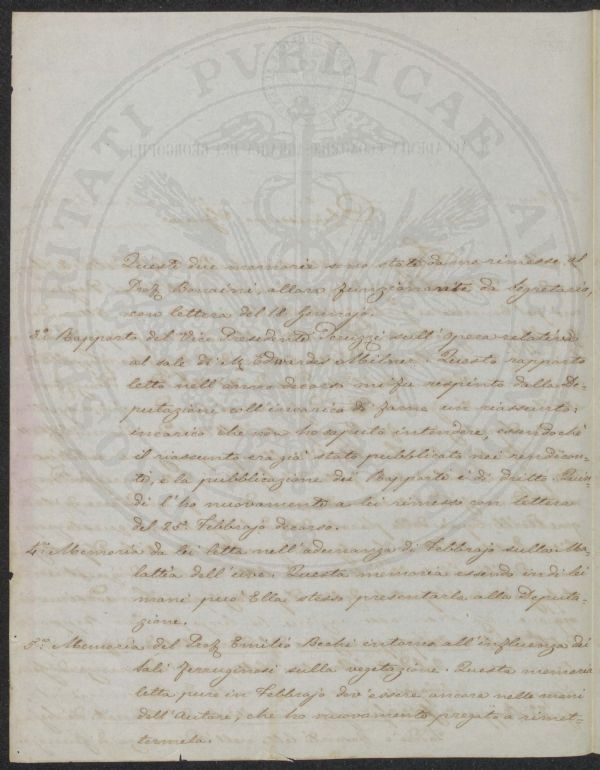 Queste due memorie sono state da me rimesse al
Prof. Bonaini, allora funzionante da Segretario,
con lettera del 18 Gennajo.
3.º Rapporto del Vice Presidente Peruzzi sull'opera relativa
al sale di M. Edwards Milner. Questo rapporto
letto nell'anno decorso mi fu respinto dalla De-
putazione coll'incarico di farne un riassunto:
incarico che non ho saputo intendere, essendochè
il riassunto era già stato pubblicato nei rendicon-
ti, e la pubblicazione dei Rapporti è di dritto. Quin-
di l'ho nuovamente a lei rimesso con lettera
del 25 Febbrajo decorso.
4.º Memoria da lei letta nell'adunanza di Febbrajo sulla Ma-
lattia dell'uve. Questa memoria essendo in di lei
mani può Ella stessa presentarla alla Deputa-
zione.
5.º Memoria del Prof. Emilio Bechi intorno all'influenza dei
Sali ferruginosi sulla vegetazione. Questa memoria
letta pure in Febbrajo dev'essere ancora nelle mani
dell'Autore, che ho nuovamente pregato a rimet-
termela.
PROSPERITATI PUBLICAE AUGENDAE